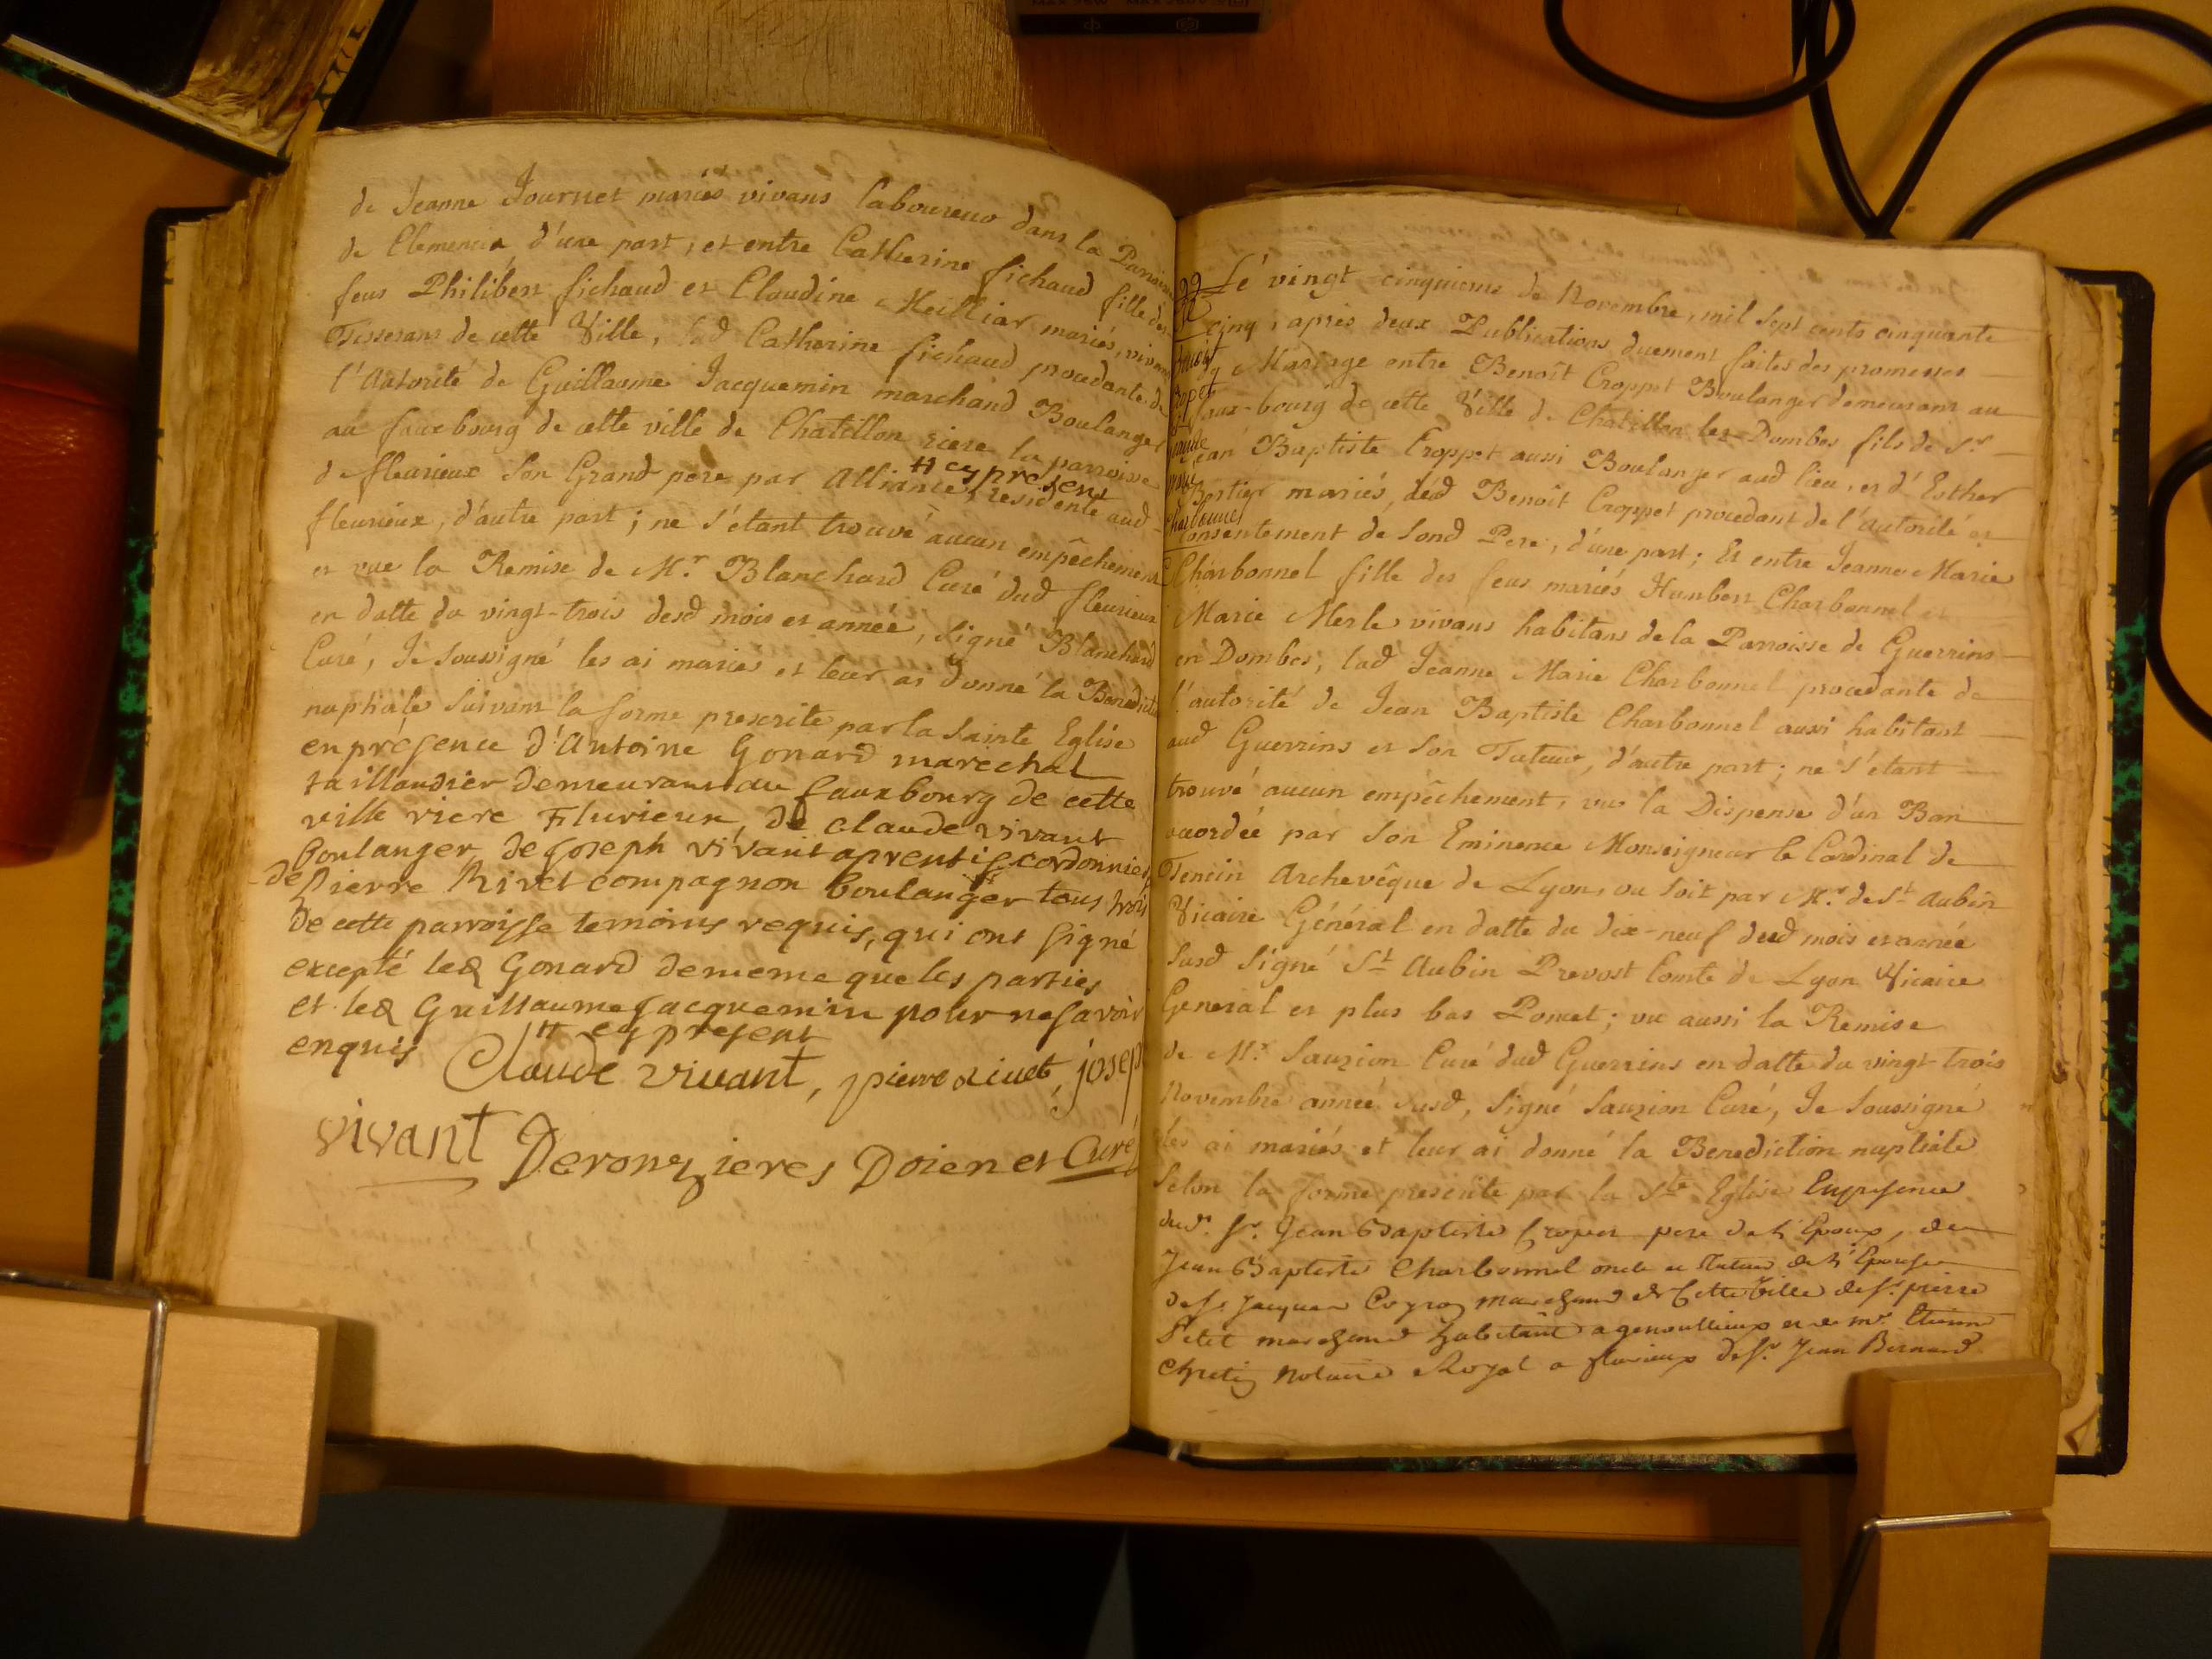 de Jeanne Journet mariés vivans laboureurs dans la Paroisse
de Clemencia d'une part, et entre Catherine fichaud fille des
feus Philibert fichaud et Claudine Meilliar mariés, vivans
Tisserans de cette Ville, lad Catherine fichaud procedante de
l'Autorité de Guillaume Jacquemin marchand Boulanger
au fauxbourg de cette ville de Chatillon riere la parroisse
de fleurieux son Grand pere par Alliance # residente aud
# cy present
fleurieux, d'autre part; ne s'etant trouvé aucun empêchement
et vue la Remise de Mr. Blanchard Curé dud fleurieux
en datte du vingt-trois desd mois et année, signé Blanchard
Curé, Je soussigné les ai mariés et leur ai donné la Benedict
nuptiale suivant la forme prescrite par la Sainte Eglise
en présence d'Antoine Gonard marechal
taillandier demeurant au fauxbourg de cette
ville riere Flurieux, de claude vivant
boulanger de joseph vivant aprentif cordonnier
de pierre Rivet compagnon boulanger tous trois
de cette parroisse temoins requis, qui ont signé
excepté led Gonard de meme que les parties
et led Guillaume Jacquemin pour ne savoir
enquis # cy present
Claude vivant, pierre rivet, josep
vivant Deronzieres Doien et Curé
99
Benoit
Cropet
Jeanne
marie
charbonnel
Le vingt-cinquieme de Novembre, mil sept cents cinquante
cinq, après deux Publications duement faites des promesses
de Mariage entre Benoît Croppet Boulanger demeurant au
faux-bourg de cette Ville de Chatillon les-Dombes fils de Sr
Jean Baptiste Croppet aussi Boulanger aud lieu, et d'Esther
mariés, led Benoît Croppet procedant de l'autorité et
consentement de sond Pere, d'une part; Et entre Jeanne Marie
Charbonnel fille des feus mariés Humbert Charbonnel et
Marie Merle vivans habitans de la Parroisse de Guerrins
en Dombes, lad Jeanne Marie Charbonnel procedante de
l'autorité de Jean Baptiste Charbonnel aussi habitant
aud Guerrins et son Tuteur, d'autre part; ne s'etant
trouvé aucun empêchement, vue la Dispense d'un Ban
accordée par son Eminence Monseigneur le Cardinal de
Tencin Archevêque de Lyon, ou soit par Mr. de St Aubin
Vicaire Général en datte du dix-neuf desd mois et année
susd signé St Aubin Prevost Comte de Lyon Vicaire
General et plus bas Poncet; vu aussi la Remise
de Mr. Sauzion Curé dud Guerrins en datte du vingt-trois
Novembre année susd, signé Sauzion Curé, Je soussigné
les ai mariés et leur ai donné la Benediction nuptiale
selon la forme prescrite par la Ste Eglise En presence
dud. Sr. Jean Baptiste Cropet pere de L'Epoux, de
Jean Baptiste Charbonnel oncle et Tuteur de L'Epouse
de Sr Jacques marchand de Cette Ville de Sr. pierre
Petet marchand habitant a genoullieux et de mr. Etienne
Chretin Notaire Royal a flurieux de Sr. Jean Bernard